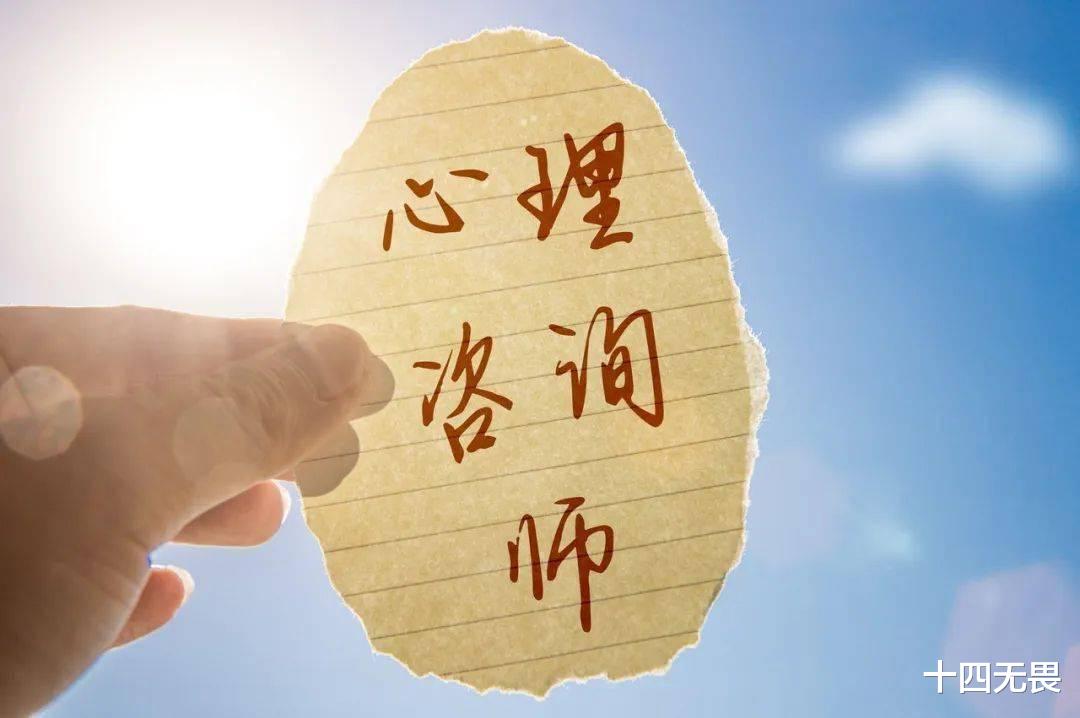 心理
咨询
师
十四无畏